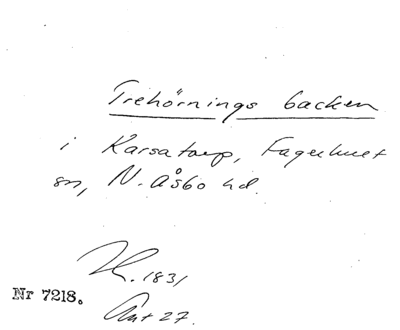 Trehörnings backen
i Karsatorp, Fagerhult
sn, N. Åsbo hd.
H. 1831
Nr 7218.
Ant 27.